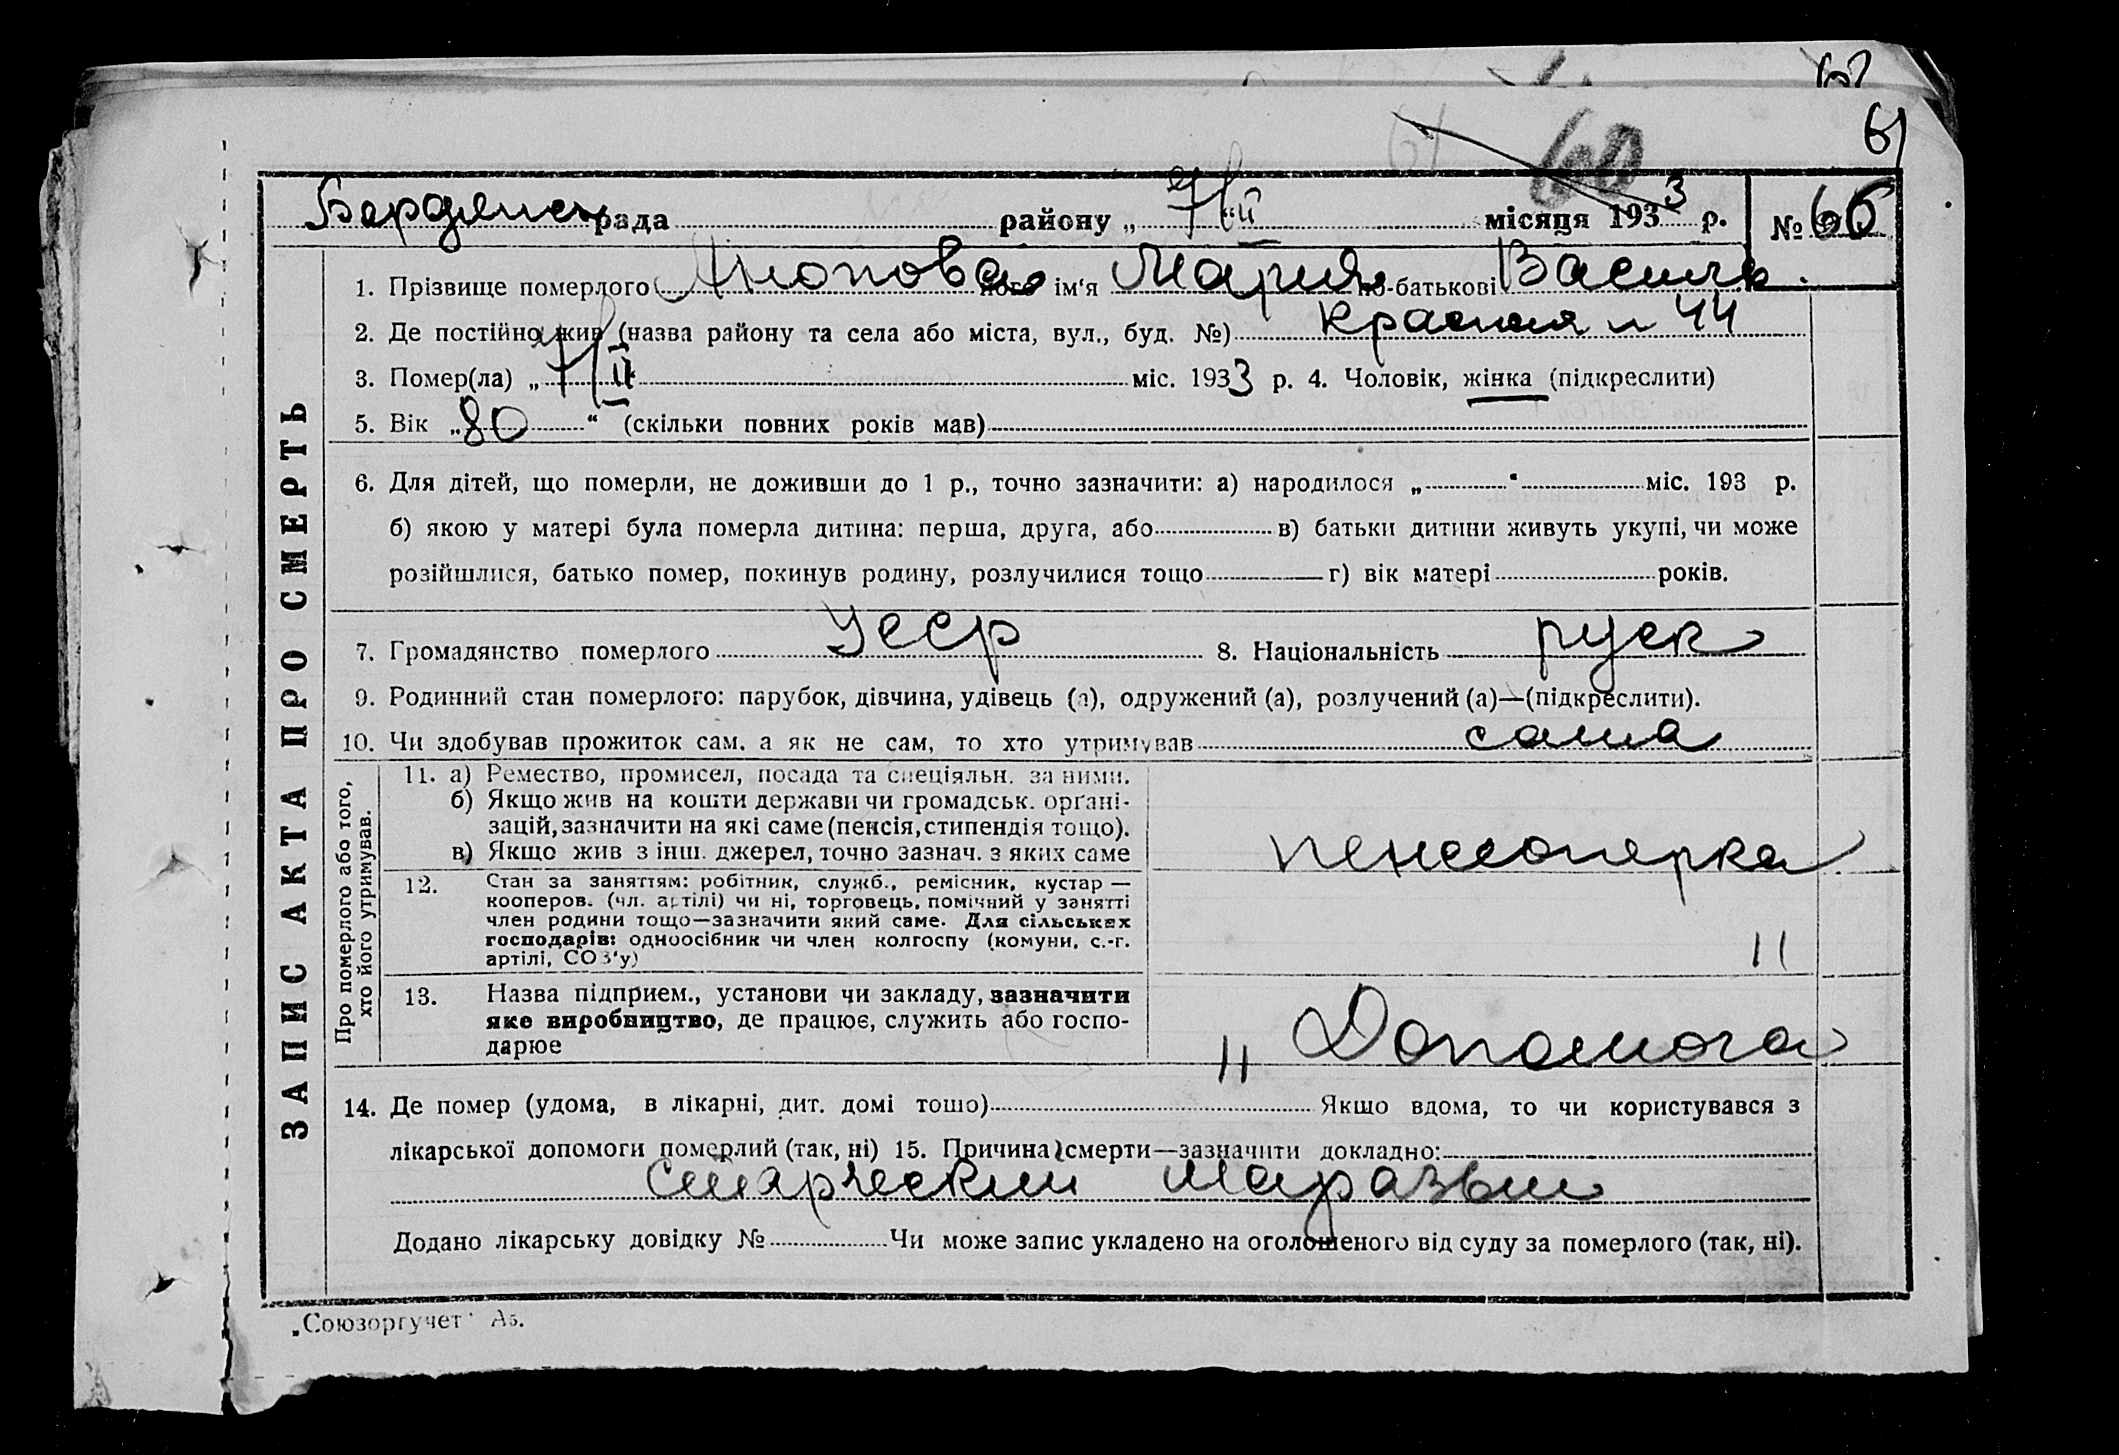 61
61 60
Бердянск рада района „7/II“ місяця 1933 р. № 66
1. Прізвище померлого Анопова його ім'я Мария по-батькові Василь.
2. Де постійно жив (назва району та села або міста, вул., буд. №) Красная № 44
3. Помер(ла) „7/II міс. 1933 р. 4. Чоловік, жінка (підкреслити)
5. Вік „80“ (скільки повних років мав)
6. Для дітей, що померли, не доживши до 1 р., точно зазначити: а) народилося „ “ міс. 193 р.
б) якою у матері була померла дитина: перша, друга, або в) батьки дитини живуть укупі, чи може
розійшлися, батько помер, покинув родину, розлучилися тощо г) вік матері років.
7. Громадянство померлого Усср 8. Національність руск
9. Родинний стан померлого: парубок, дівчина, удівець (а), одружений (а), розлучений (а)—(підкреслити).
10. Чи здобував прожиток сам, а як не сам, то хто утримував сама
11. а) Ремество, промисел, посада та спеціяльн. за ними.
б) Якщо жив на кошти держави чи громадськ. організацій, зазначити на які саме (пенсія, стипендія тощо).
в) Якщо жив з інш. джерел, точно зазнач. з яких саме
пенсионерка
12. Стан за заняттям: робітник, служб., ремісник, кустар —
кооперов. (чл. артілі) чи ні, торговець, помічний у занятті
член родини тощо—зазначити який саме. Для сільських
господарів: одноосібник чи член колгоспу (комуни, с.-г.
артілі, СОЗ'у)
"
13. Назва підприєм., установи чи закладу, зазначити
яке виробництво, де працює, служить або госпо-
дарює
" Допомога
14. Де помер (удома, в лікарні, дит. домі тощо) Якшо вдома, то чи користувався з
лікарської допомоги померлий (так, ні) 15. Причина смерти—зазначити докладно:
старческий маразьм
Додано лікарську довідку № Чи може запис укладено на оголошеного від суду за померлого (так, ні).
ЗАПИС АКТА ПРО СМЕРТЬ
Про померлого або того,
хто його утримував.
„Союзоргучет“ Аз.